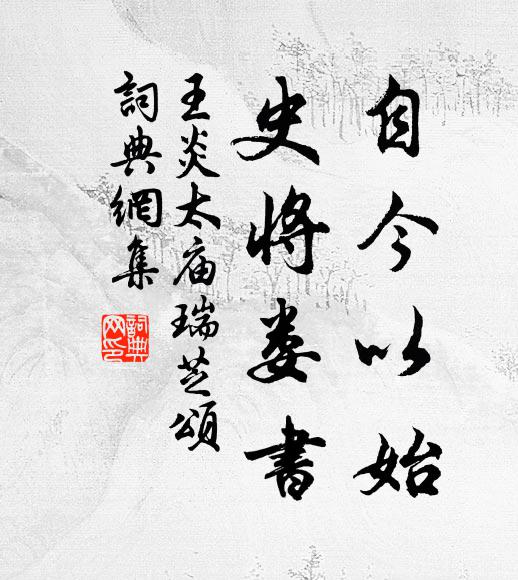 自今以始
史将娄書
王炎太庙瑞芝頌
詞典網集
詞典网印